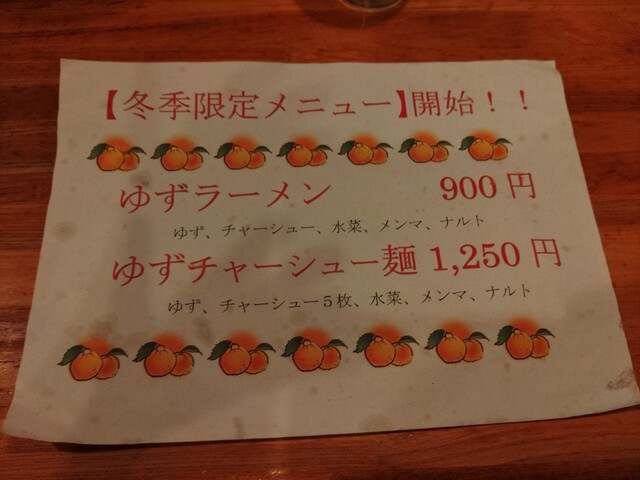 【冬季限定メニュー】開始！！
ゆずラーメン 900円
ゆず、チャーシュー、水菜、メンマ、ナルト
ゆずチャーシュー麺 1,250円
ゆず、チャーシュー５枚、水菜、メンマ、ナルト